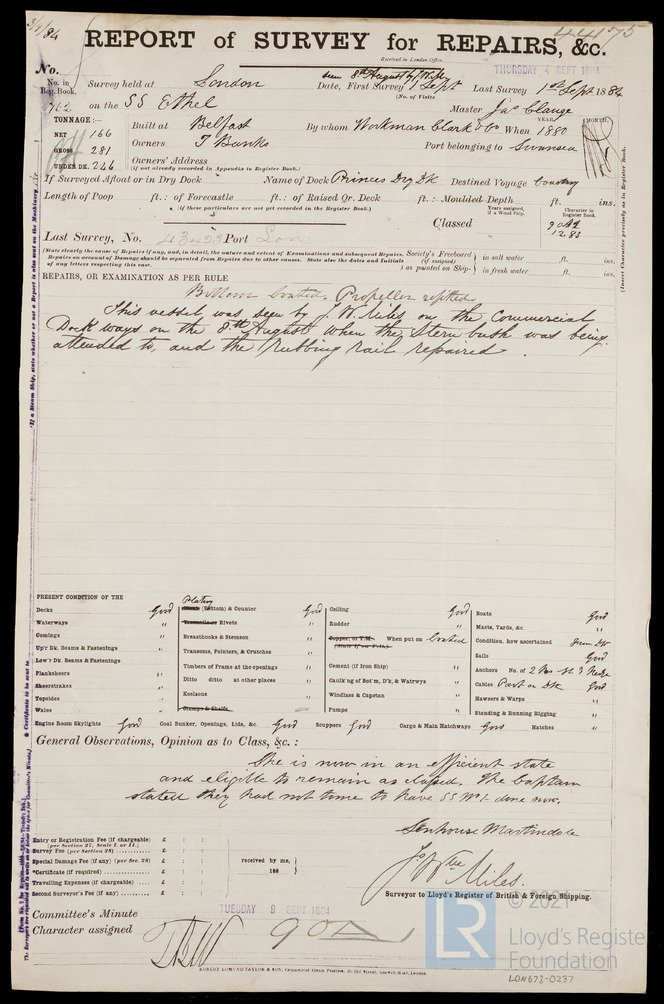 3/9/84
44175
REPORT of SURVEY for REPAIRS, &c.
Received in London Office.
THURSDAY 4 SEPT 1884
No.
No. in Reg. Book.
762
Survey held at London
seen 8th August by J W Miles
Date, First Survey 1 Sept Last Survey 1st Sept 1884
(No. of Visits
on the SS Ethel
Master Jas Clauge
TONNAGE:—
NET 166
GROSS 281
UNDER DK. 246
Built at Belfast By whom Workman Clark & Co When 1880
YEAR. MONTH.
Owners T Banks Port belonging to Swansea
Owners' Address
(if not already recorded in Appendix to Register Book.)
If Surveyed Afloat or in Dry Dock Name of Dock Princes Dry Dk Destined Voyage Country
Length of Poop ft.: of Forecastle ft.: of Raised Qr. Deck ft.: Moulded Depth ft. ins.
(if these particulars are not yet recorded in the Register Book.)
Years assigned, if a Wood Ship.
Character in Register Book.
Classed 90A1
12.83
Last Survey, No. 43423 Port Lon
(State clearly the cause of Repairs if any, and, in detail, the nature and extent of Examinations and subsequent Repairs.
Repairs on account of Damage should be separated from Repairs due to other causes. State also the dates and Initials
of any letters respecting this case.
Society's Freeboard (if assigned) as painted on Ship—
in salt water ft. ins.
in fresh water ft. ins.
REPAIRS, OR EXAMINATION AS PER RULE
Bottom coated. Propeller refitted
This vessel was seen by J. W. Miles on the Commercial
Dock ways on the 8th August when the Stern bush was being
attended to, and the rubbing rail repaired.
PRESENT CONDITION OF THE
Decks Good
Waterways "
Comings "
Up'r Dk. Beams & Fastenings "
Low'r Dk. Beams & Fastenings
Planksheers "
Sheerstrakes "
Topsides "
Wales "
Plating (Bottom) & Counter Good
Treenails or Rivets "
Breasthooks & Stemson "
Transoms, Pointers, & Crutches "
Timbers of Frame at the openings "
Ditto ditto at other places "
Keelsons "
Clamps & Shelfs
Ceiling Good
Rudder "
Copper, or Y.M. When put on Coated
(State if on Felt.)
Cement (if Iron Ship) "
Caulk'ng of Bot'm, D'k, & Waterw'ys "
Windlass & Capstan "
Pumps "
Boats Good
Masts, Yards, &c. "
Condition, how ascertained From Dk
Sails Good
Anchors No. of 2
Cables Part on Dk Good
Hawsers & Warps "
Standing & Running Rigging "
Engine Room Skylights Good Coal Bunker, Openings, Lids, &c. Good Scuppers Good Cargo & Main Hatchways Good Hatches "
General Observations, Opinion as to Class, &c.:
She is now in an efficient state
and eligible to remain as classed. The Captain
stated they had not time to have SS No 1 done now.
Entry or Registration Fee (if chargeable) £ : :
(per Section 27, Scale I. or II.)
Survey Fee (per Section 28) £ : :
Special Damage Fee (if any) (per Sec. 28) £ : :
*Certificate (if required) £ : :
Travelling Expenses (if chargeable) £ : :
Second Surveyor's Fee (if any) £ : :
received by me,
188
Senhouse Martindale
J. W. Miles.
Surveyor to Lloyd's Register of British & Foreign Shipping.
Committee's Minute
TUESDAY 9 SEPT 1884
Character assigned 90A1
ROBERT EDMUND TAYLOR & SON,
© 2021
LR
Lloyd's Register
Foundation
LON673-0237
(Insert Character precisely as in Register Book.